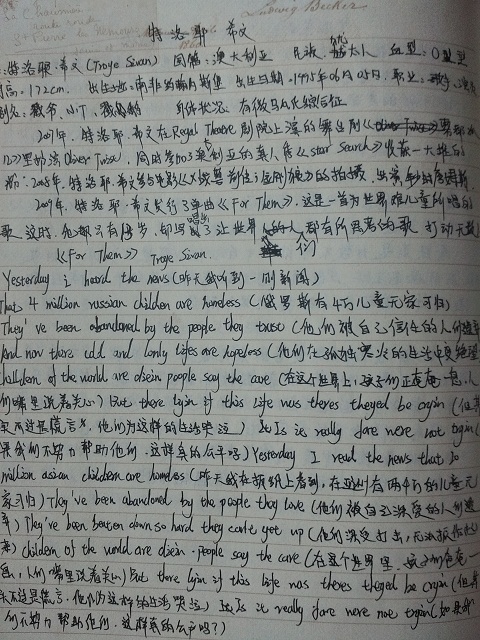 特洛耶 希文
Ludwig Becker
:特洛耶·希文(Troye Sivan) 国籍:澳大利亚 民族:犹太人 血型:O型
高:172cm. 出生地:南非约翰内斯堡 出生日期:1995年06月05日. 职业:歌手,演员
别名:戳爷、小T、 身体状况:有微马凡综合征
2007年,特洛耶·希文在Regal Theatre剧院上演的舞台剧
里的(Oliver Twist),同时参加了澳利亚的真人秀《Star Search》收获一大堆的
2008年,特洛耶·希文参与电影《X战警前传:金刚狼》的拍摄,出演
2009年,特洛耶·希文发行了单曲《For Them》,这是一首为世界难民儿童所唱的
歌.这时,他都只有13岁,却唱出了让世界的人都有所思考的歌,打动无数
《For Them》 Troye Sivan. 们
Yesterday i heard the news(昨天我听到一则新闻)
That 4 million russian children are homeless(俄罗斯有4万儿童无家可归)
They've been abandoned by the people they trust(他们被自己信任的人们遗弃
And now there cold and lonly lifes are hopeless(他们在孤独寒冷的生活中绝望
Children of the world are disein people say the care(在这个世界上,孩子们正奄奄一息,人
们嘴里说着关心)But there lyin if this life was theres theyed be cryin(但其
实不过是谎言,他们为这样的生活哭泣) But Is it really fare were not tryin(
果我们不努力帮助他们,这样真的公平吗)Yesterday I read the news that 20
million asian children are homeless(昨天我在报纸上看到,在亚洲有两千万的儿童无
家可归)They've been abandoned by the people they love(他们被自己深爱的人们遗
弃)They've been beaten down so hard they can't get up(他们深受打击,无法振作起
来)Children of the world are disein.people say the care(在这个世界里,孩子们奄奄一
息,人们嘴里说着关心)But there lyin if this life was theres theyed be cryin(但其
实不过是谎言,他们为这样的生活哭泣)But Is it really fare were not tryin(如果我
们不努力帮助他们,这样真的公平吗?)